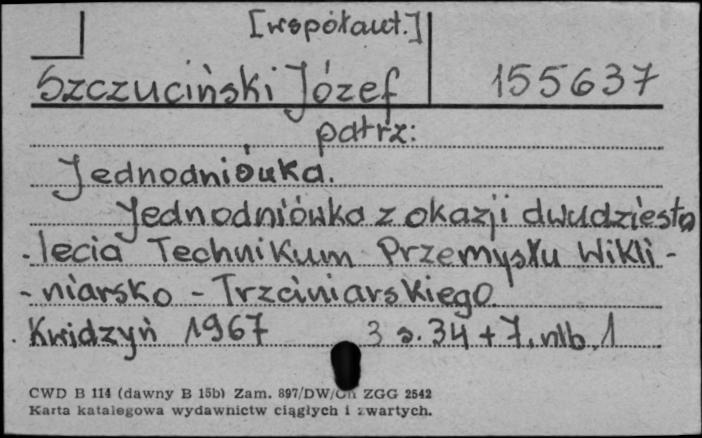 [współaut.]
Szczuciński Józef 155637
patrz:
Jednodniówka.
Jednodniówka z okazji dwudziesto
-lecia Technikum Przemysłu Wikli-
-niarsko-Trzciniarskiego.
Kwidzyń 1967 3 s. 34 + 7, nlb. 1
CWD B 114 (dawny B 15b) Zam. 897/DW/ ZGG 2542
Karta katalogowa wydawnictw ciągłych i zwartych.